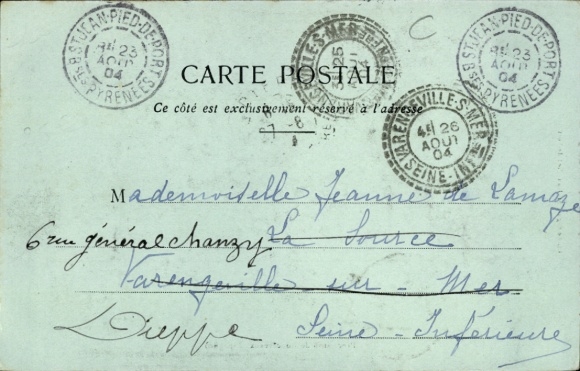 ST-JEAN-PIED-DE-PORT
23
AOUT
04
BSES PYRENEES
ST-JEAN-PIED-DE-PORT
23
AOUT
04
BSES PYRENEES
25
CARTE POSTALE
Ce côté est exclusivement réservé à l'adresse
VARENGEVILLE-S-MER
4E 26
AOUT
04
SEINE-INFRE
Mademoiselle Jeanne de Lamaze
6 rue général chanzy La Source
Varengeville sur Mer
Dieppe Seine-Inférieure